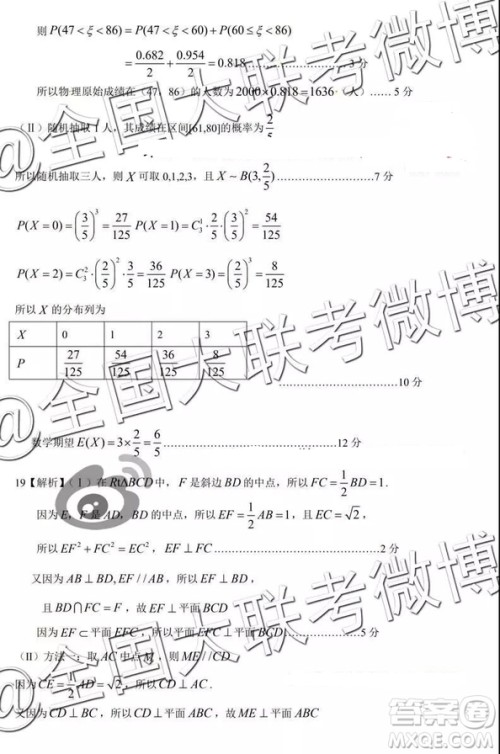 则 P(47<ξ<86)=P(47<ξ<60)+P(60≤ξ<86)
=0.682/2+0.954/2=0.818……………………3分
所以物理原始成绩在(47，86)的人数为2000×0.818=1636（人）……5分
（Ⅱ）随机抽取1人，其成绩在区间[61,80]的概率为2/5
所以随机抽取三人，则 X 可取 0,1,2,3，且 X~B(3,2/5)……………………7分
P(X=0)=(3/5)³=27/125 P(X=1)=C₃¹·2/5·(3/5)²=54/125
P(X=2)=C₃²·(2/5)²·3/5=36/125 P(X=3)=(2/5)³=8/125
所以 X 的分布列为
X 0 1 2 3
P 27/125 54/125 36/125 8/125
……………………10分
数学期望 E(X)=3×2/5=6/5……………………12分
19【解析】（Ⅰ）在Rt△BCD中，F 是斜边 BD 的中点，所以 FC=1/2BD=1.
因为 E，F 是 AD，BD 的中点，所以 EF=1/2AB=1，且 EC=√2，
所以 EF²+FC²=EC²，EF⊥FC……………………2分
又因为 AB⊥BD,EF//AB，所以 EF⊥BD，
且 BD∩FC=F，故 EF⊥平面BCD
因为 EF⊂平面 EFC，所以平面 EFC⊥平面BCD……………………5分
（II）方法一：取 AC 中点 M，则 ME//CD.
因为 CE=1/2AD=√2，所以 CD⊥AC.
又因为 CD⊥BC，所以 CD⊥平面 ABC，故 ME⊥平面 ABC
@全国大联考微博
@全国大联考微博
@全国大联考微博
答案圈
MXQE.COM